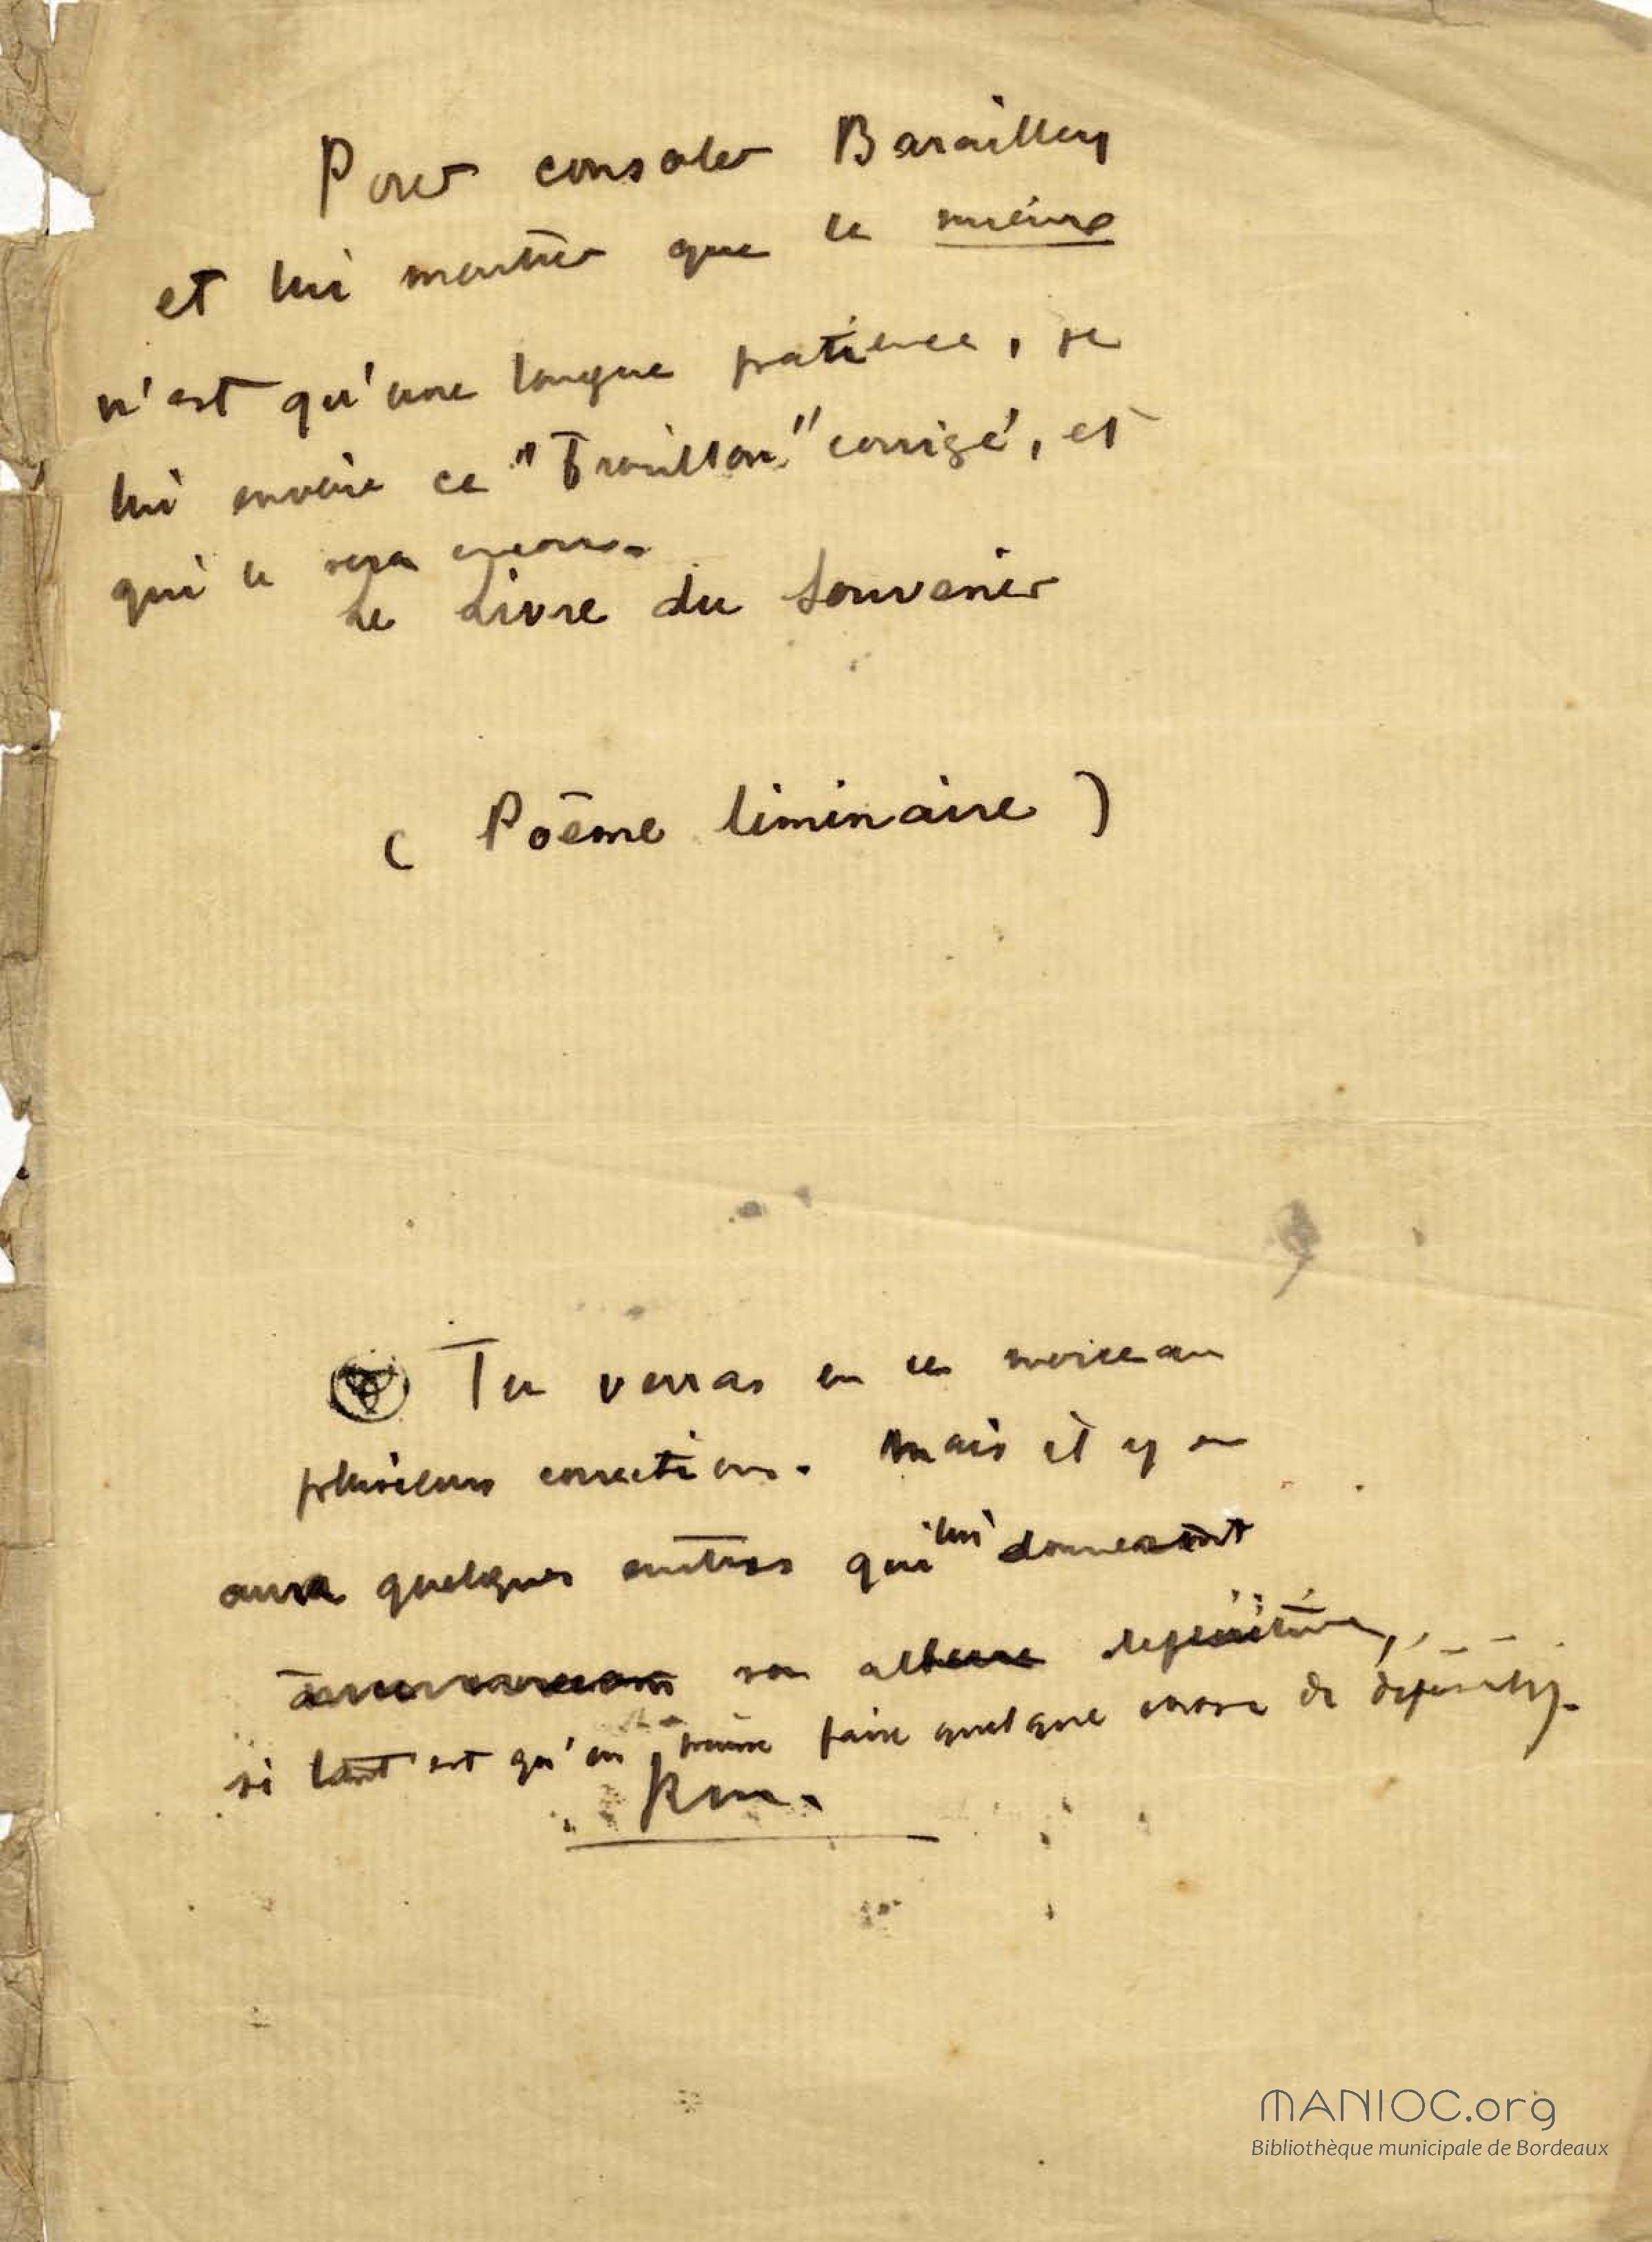 Pour consoler Barailley
et lui montrer que le mieux
n'est qu'une longue patience, je
lui envoie ce "Trouillon" corrigé, et
qui le sera encore.
Le Livre du Souvenir
( Poème liminaire )
Tu verras en ce morceau
plusieurs corrections. Mais il y en
aura quelques autres qui lui donneront
son allure definitive,
si tant est qu'on puisse faire quelque chose de définitif.
MANIOC.org
Bibliothèque municipale de Bordeaux